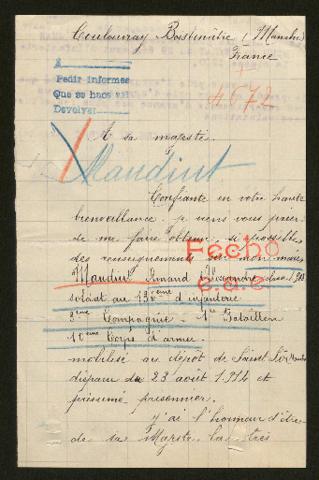 Coulouvray Boisbenâtre (Manche)
France
A
Pedir informes
Que se haca
Devolver
4672
A sa majesté
Maudint
Confiante en votre haute
bienveillance je viens vous prier
de me faire obtenir si possible
des renseignements sur mon mari
Fecho
Armand classe 1908
c.a.e.
soldat au 136ème d'infanterie
3ème Compagnie - 1er Bataillon
10ème Corps d'armée.
mobilisé au dépôt de Saint Lô Manche
disparu du 23 août 1914 et
présumé prisonnier.
J'ai l'honneur d'être
de sa Majesté la très